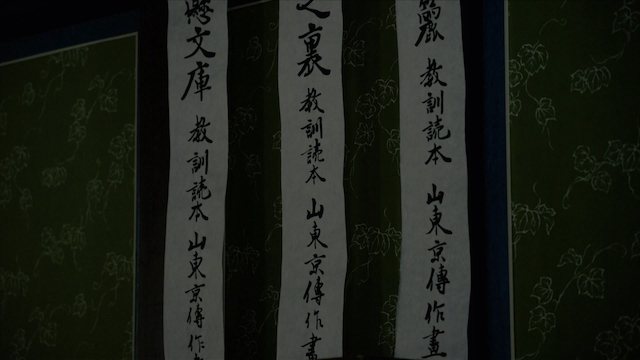 籭 教訓読本 山東京傳作畫
之裏 教訓読本 山東京傳作畫
懸文庫 教訓読本 山東京傳作